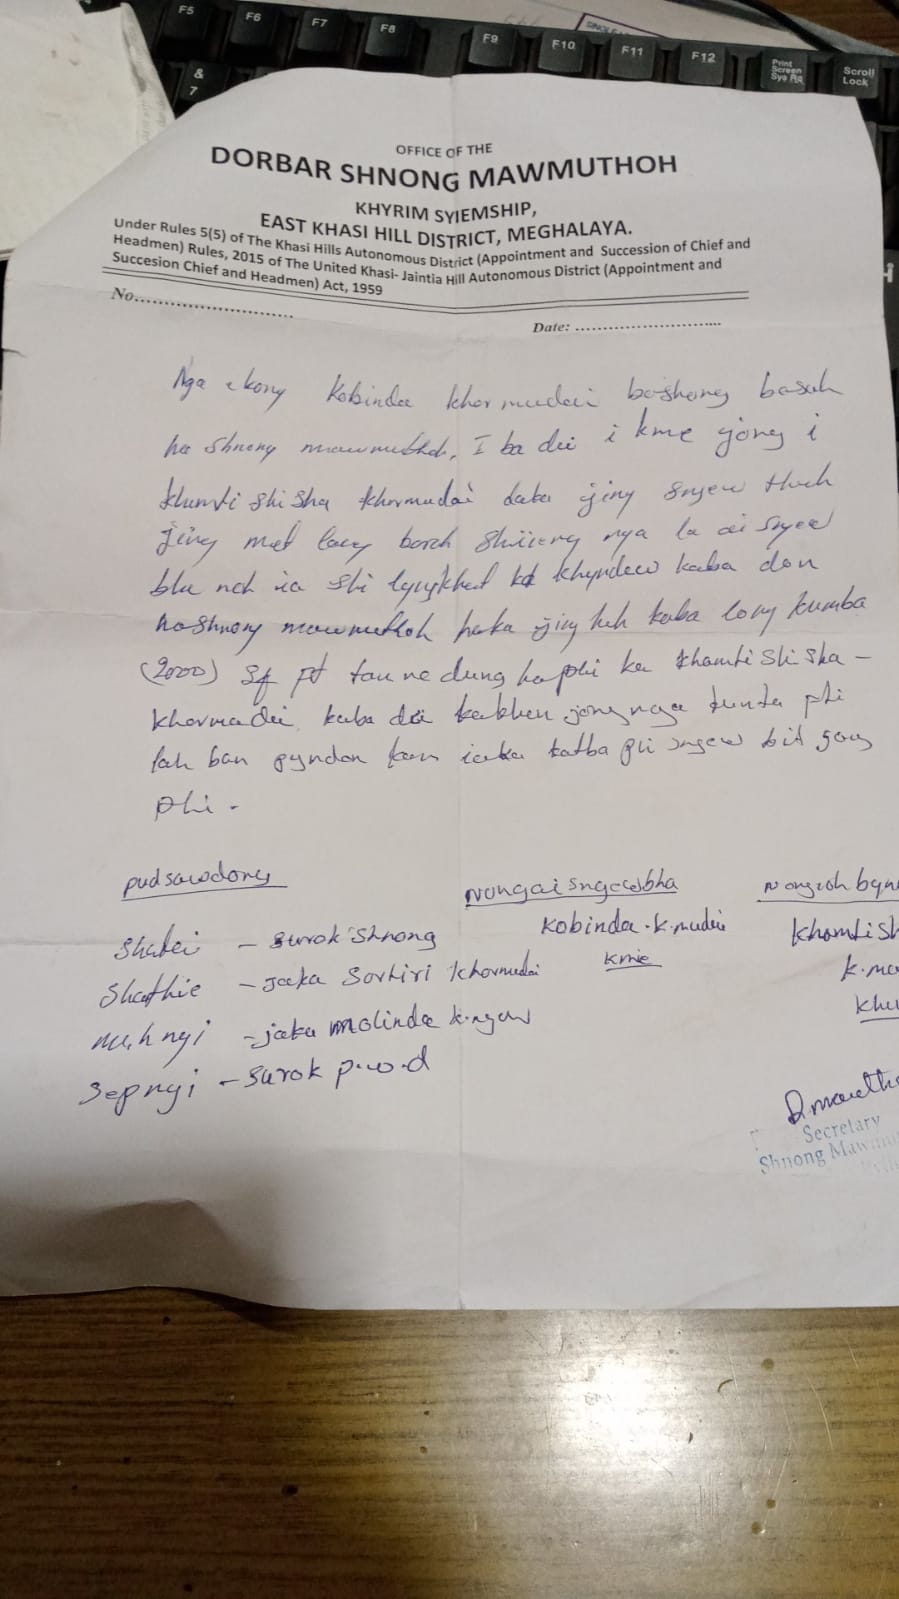 F5 F6 F7 F8 F9 F10 F11 F12 Print Screen Sys Rq Scroll Lock
& 7
OFFICE OF THE
DORBAR SHNONG MAWMUTHOH
KHYRIM SYIEMSHIP,
EAST KHASI HILL DISTRICT, MEGHALAYA.
Under Rules 5(5) of The Khasi Hills Autonomous District (Appointment and Succession of Chief and
Headmen) Rules, 2015 of The United Khasi-Jaintia Hill Autonomous District (Appointment and
Succesion Chief and Headmen) Act, 1959
No..............................
Date: ............................
Nga kong Kobinda khormudai bashong basah
ha shnong mawmuthoh. I ba dei i kme jong i
khamti shisha khormudai daka jing sngew thuh
jing mat lang barch shiieng nga la ai sngew
bha noh ia shi lyngkhat ka khyndew kaba don
hashnong mawmuthoh haka jing heh kaba long kumba
(2000) sq ft tau ne dung haphi ka khamti shisha -
khormudai kaba dei kakhun jong nga kunta phi
lah ban pyndon kam iaka katba phi sngew bit jong
phi.
pudsawdong
nongai sngewbha
Shatei - Surok Shnong
Kobinda.k.mudai
Shathie - jaka Sortiri khormudai
kmie
- jaka Molinda
Sepngi - Surok p.w.d
Secretary